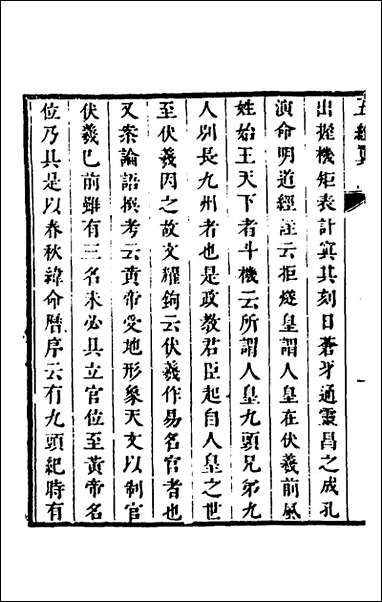 五經算
出握機矩表計寘其刻日蒼牙通靈昌之成孔
演命明道經註云拒燧皇謂人皇在伏羲前風
姓始王天下者斗機云所謂人皇九頭兄弟九
人別長九州者也是政教君臣起自人皇之世
至伏羲因之故文耀鉤云伏羲作易名官者也
又案論語撰考云黃帝受地形象天文以制官
伏羲巳前雖有三名未必具立官位至黃帝名
位乃具是以春秋緯命曆序云有九頭紀時有